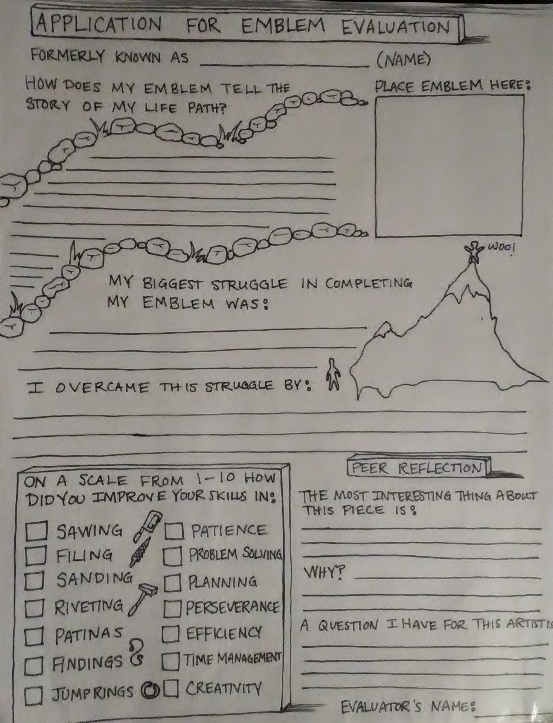 APPLICATION FOR EMBLEM EVALUATION
FORMERLY KNOWN AS (NAME)
HOW DOES MY EMBLEM TELL THE
STORY OF MY LIFE PATH?
PLACE EMBLEM HERE:
WOO!
MY BIGGEST STRUGGLE IN COMPLETING
MY EMBLEM WAS:
I OVERCAME THIS STRUGGLE BY:
ON A SCALE FROM 1-10 HOW
DID YOU IMPROVE YOUR SKILLS IN:
SAWING
FILING
SANDING
RIVETING
PATINAS
FINDINGS
JUMPRINGS
PATIENCE
PROBLEM SOLVING
PLANNING
PERSEVERANCE
EFFICIENCY
TIME MANAGEMENT
CREATIVITY
PEER REFLECTION
THE MOST INTERESTING THING ABOUT
THIS PIECE IS:
WHY?
A QUESTION I HAVE FOR THIS ARTIST IS
EVALUATOR'S NAME: